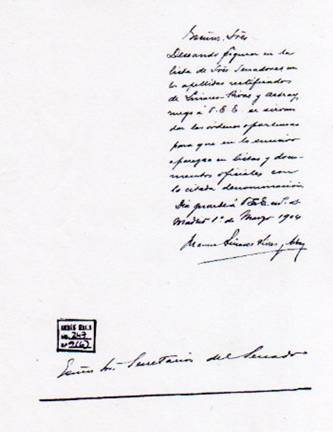 Excmos. Sres.
Deseando figurar en la
lista de Sres Senadores con
los apellidos rectificados
de Linares-Rivas y Astray,
ruego a V.E.E. se sirvan
dar las órdenes oportunas
para que en lo sucesivo
aparezca en listas y docu-
mentos oficiales con
la citada denominación
Dios guarde á V.E.E. m. a.
Madrid 1º de Marzo 1904
Linares Rivas y Astray
Excmos. Sres. Secretarios del Senado